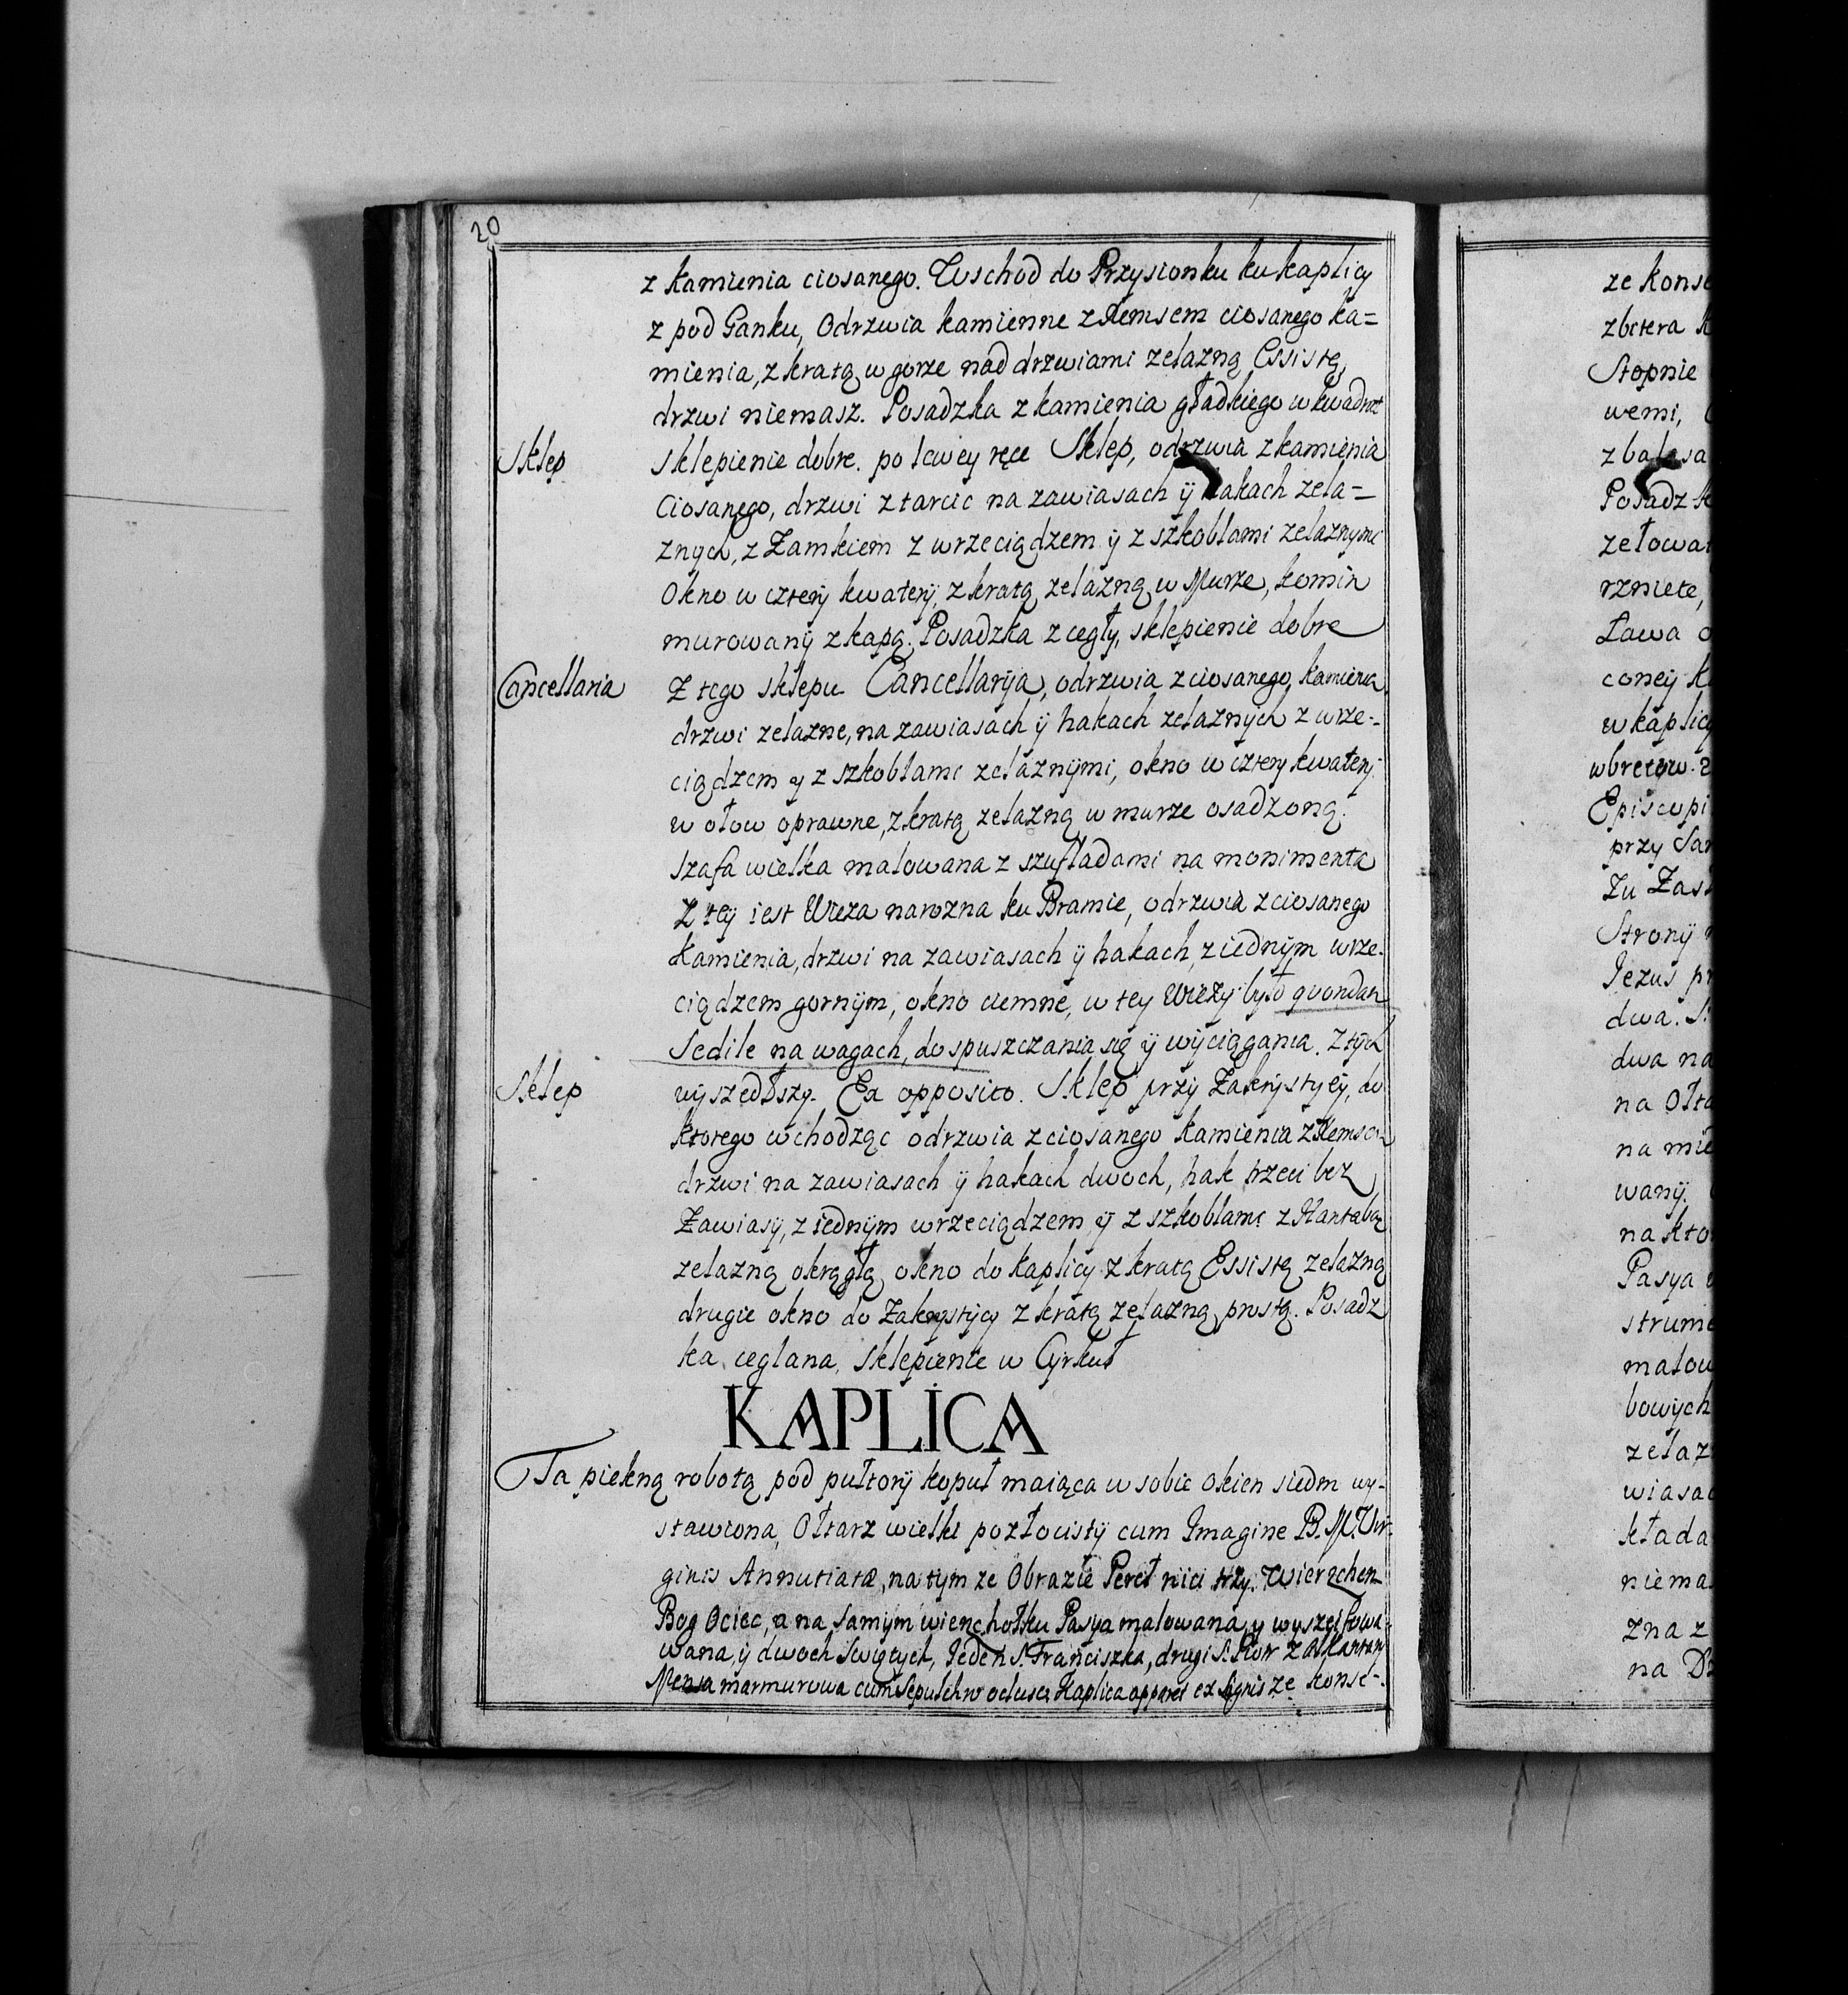 20
z kamienia ciosanego. Wschod do Przysionku ku kaplicy
z pod Ganku, Odrzwia kamienne z Remsem ciosanego ka=
mienia, z kratą w gorze nad drzwiami zelazną Essistą,
drzwi niemasz. Posadzka z kamienia gładkiego w kwadrat
Sklep
sklepienie dobre. po lewey ręce Sklep, odrzwia z kamienia
Ciosanego, drzwi z tarcic na zawiasach ÿ hakach zela=
znych, z Zamkiem z wrzeciądzem ÿ z szkoblami zelaznymi
Okno w czterÿ kwaterÿ, z kratą zelazną w Murze, komin
murowanÿ z kapą. Posadzka z cegły, sklepienie dobre
Cancellaria
Z tego sklepu Cancellarÿa, odrzwia z ciosanego kamienia
drzwi zelazne, na zawiasach ÿ hakach zelaznych z wrze=
ciądzem y z szkoblami zelaznÿmi, okno w cztery kwaterÿ
w ołow oprawne, z kratą zelazną w murze osadzoną.
szafa wielka malowana z szufladami na monimenta
Z teÿ iest Wieza narozna ku Bramie, odrzwia z ciosanego
Kamienia, drzwi na zawiasach ÿ hakach, z iednÿm wrze=
ciądzem gornÿm, okno ciemne, w tey Wiezÿ było quondam
Sedile na wagach, do spuszczania się ÿ wÿciągania. Z tÿch
Sklep
wÿszedszy. Ex opposito. Sklep przÿ Zakrÿstÿeÿ, do
ktorego wchodząc odrzwia z ciosanego kamienia z Remsem
drzwi na zawiasach ÿ hakach dwoch, hak trzeci bez
Zawiasÿ, z iednÿm wrzeciądzem ÿ z szkoblami z Hantabą
zelazną okrągłą okno do kaplicy z kratą Essistą zelazną
drugie okno do Zakrystÿey z kratą zelazną prostą. Posadz
ka ceglana, Sklepienie w Cÿrkuł
KAPLICA
Ta piekną robotą pod pułtorÿ kopuł maiąca w sobie Okien siedm wy=
stawiona, Ołtarz wielki pozłocistÿ cum Imagine B. M. Vir=
ginis Annutiatæ, na tym ze Obrazie Pereł nici trzy. Wierzchem
Bog Ociec, a na samÿm wierzchołku Pasya malowana, y
wana, ÿ dwoch Swiętych, Jeden S. Franciszka, drugi S. Piotr z Alkantary
Mensa marmurowa cum Sepulchro Kaplica apparet ex Signis ze konse=
ze konse
zbitera k
Stopnie
wemi,
z balasa
Posadz k
zełowa
rzniete,
Ława o
coneÿ k
w kaplicy
Episcopi
przy San
Zu Zas
Stronÿ
Jezus pr
dwa. S.
dwa na
na Ołta
na mie
wanÿ.
na kto
Pasya
strume
malow
bowÿch
zelaz
wiasac
kłada
niema
zna z
na D